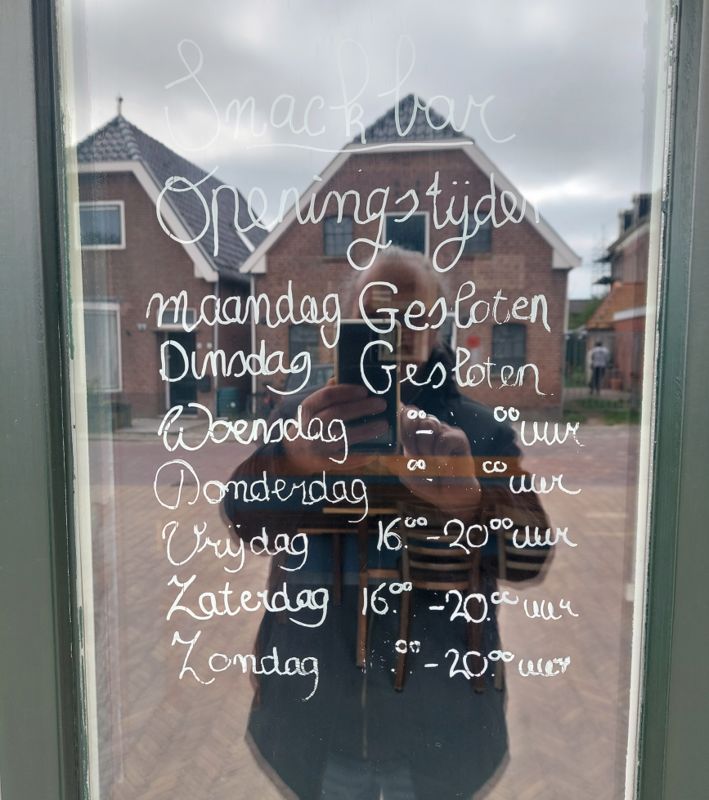 Snackbar
Openingstijden
maandag Gesloten
Dinsdag Gesloten
Woensdag 00 - 00 uur
Donderdag 00 00 uur
Vrijdag 16.00 - 20.00 uur
Zaterdag 16.00 - 20.00 uur
Zondag 00 - 20.00 uur